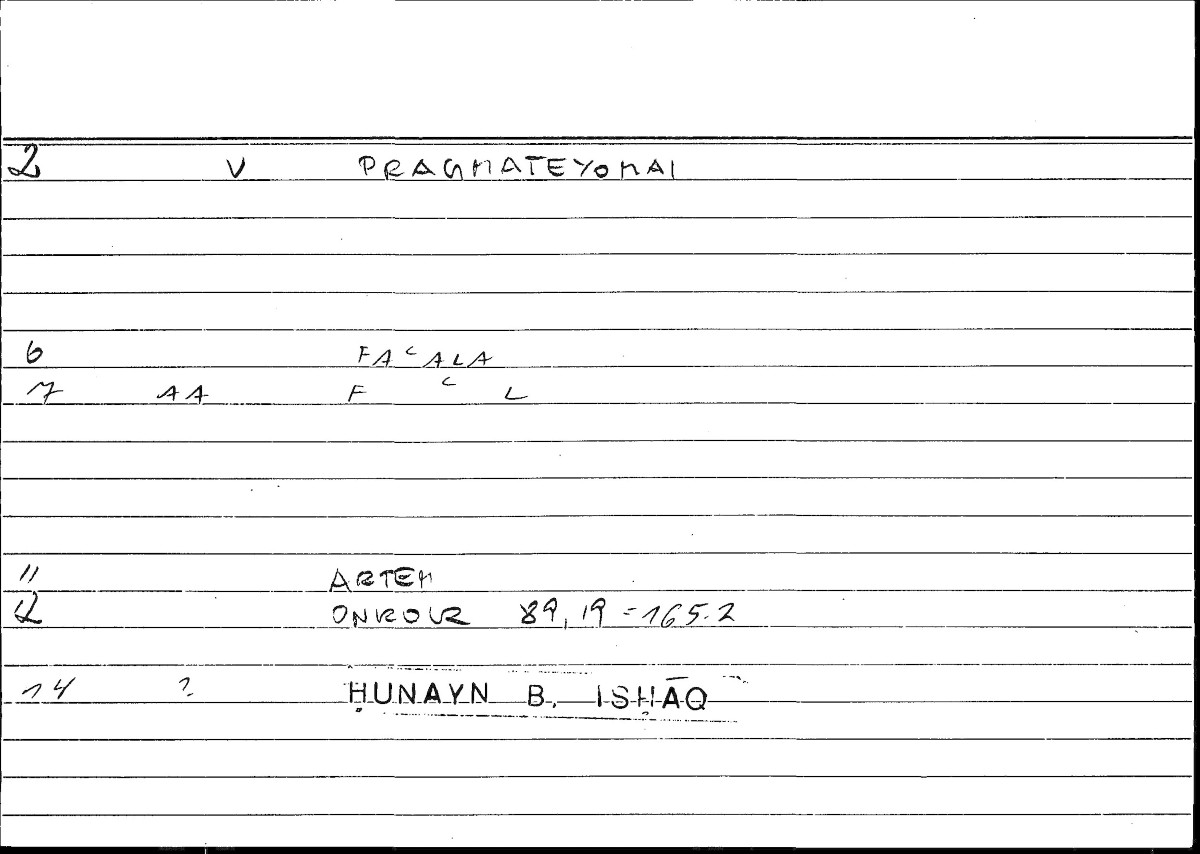 2 V PRAGMATEYOMAI
6 FAʿALA
7 AA F ʿ L
11 ARTEM
12 ONKOUR 89,19 = 165.2
14 ? ḤUNAYN B. ISḤĀQ